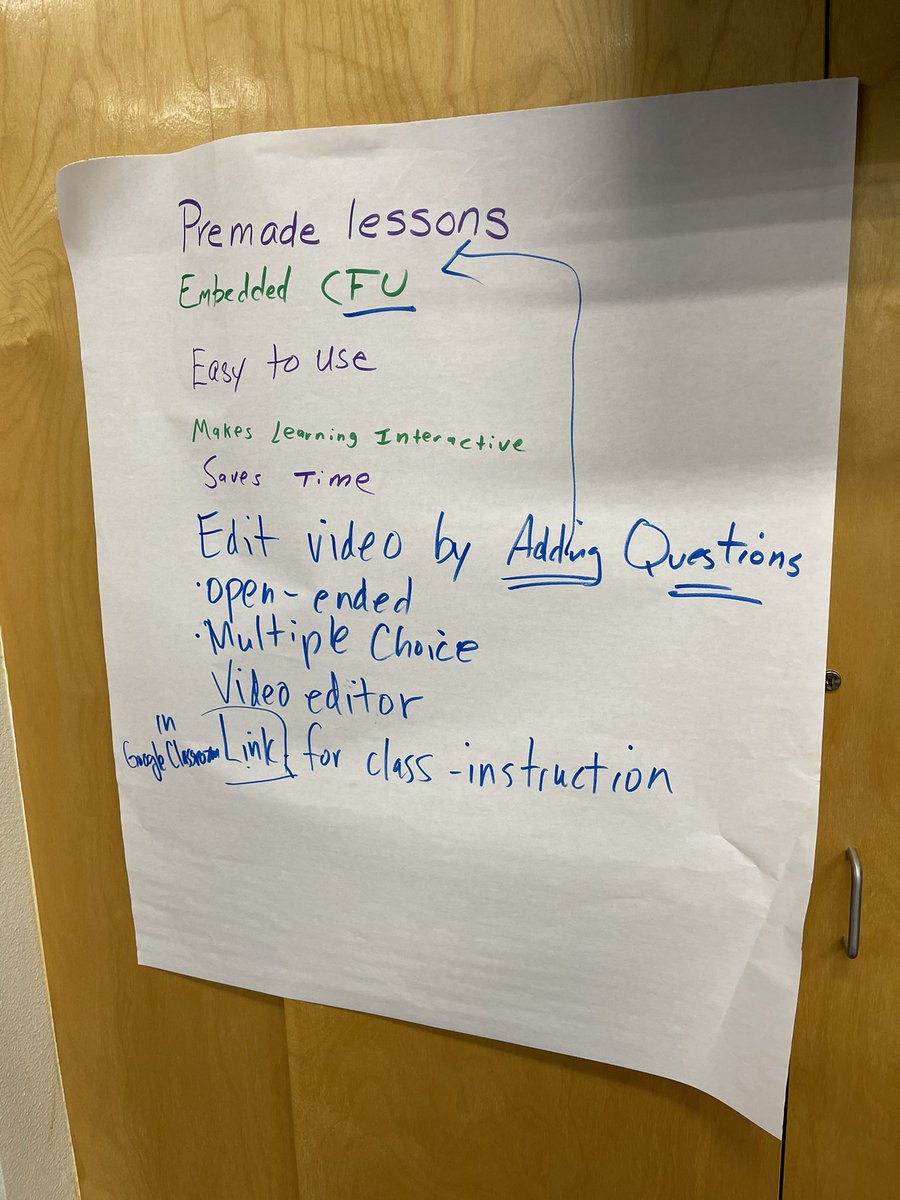 Premade lessons
Embedded CFU
Easy to use
Makes Learning Interactive
Saves Time
Edit video by Adding Questions
·open-ended
·Multiple Choice
Video editor
in
Google Classroom Link for class-instruction